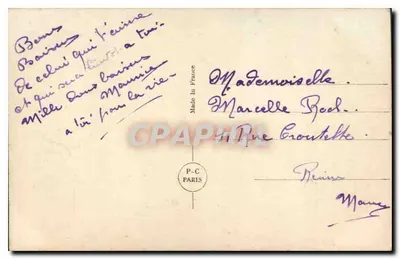 Bons
Baisers
de celui qui t'aime
et qui sera bientôt a toi.
Mille doux baisers
Maurice
a toi pour la vie
Made in France
P-C
PARIS
CPARAMA
Mademoiselle.
Marcelle
Rue Croutelle.
Reims
Marne